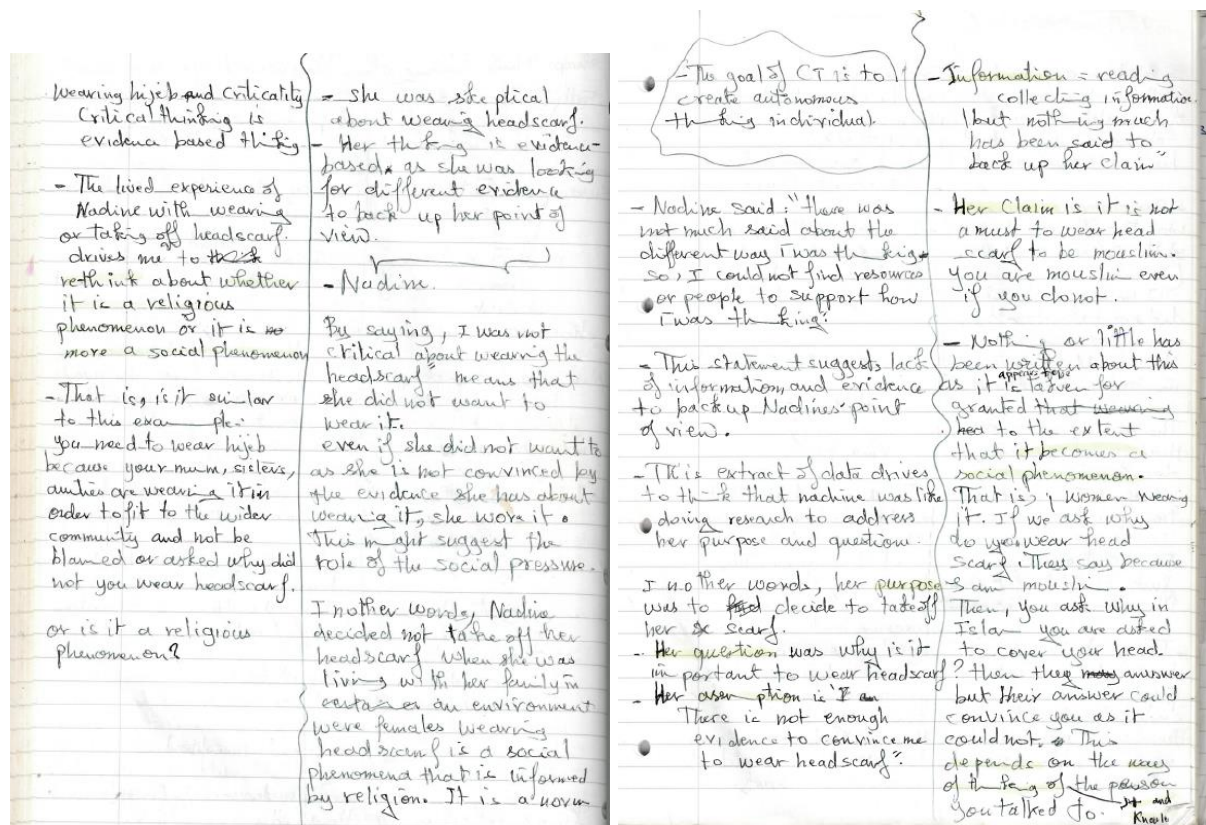 Wearing hijeb and criticality
Critical thinking is
evidence based thiking
- The lived experience of
Nadine with wearing
or taking off headscarf.
drives me to think
rethink about whether
it is a religious
phenomenon or it is no
more a social phenomenon
- That is, is it similar
to this example:
You need to wear hijeb
because your mum, sisters,
aunties are wearing it in
order to fit to the wider
community and not be
blamed or asked why did
not you wear headscarf.
or is it a religious
phenomenon?
- She was skeptical
about wearing headscarf.
- Her thiking is evidence-
based as she was looking
for different evidence
to back up her point of
view.
- Nadine.
By saying, I was not
critical about wearing the
headscarf" means that
she did not want to
wear it.
even if she did not want to
as she is not convinced by
the evidence she has about
wearing it, she wore it.
This might suggest the
role of the social pressure.
Inother words, Nadine
decided not take off her
headscarf when she was
living with her family in
an environment
were females wearing
headscarf is a social
phenomena that is informed
by religion. It is a norm
- The goal of CT is to
create autonomous
thinking individual
- Nadine said: "there was
not much said about the
different way i was thinking
so, I could not find resources
or people to support how
i was thinking"
- This statement suggests lack
of information, and evidence
to back up Nadines' point
of view.
- This extract of data drives
to think that nadine was like
doing research to address
her purpose and question.
Inother words, her purpose
was to find decide to take off
her scarf.
- Her question was why is it
important to wear headscarf?
- Her assemption is "I am
There is not enough
evidence to convince me
to wear headscarf".
- Information = reading
collecting information.
but nothing much
has been said to
back up her claim"
- Her Claim is it is not
a must to wear head
scarf to be mouslim.
you are mouslim even
if you do not.
- Nothing or little has
been written about this
as it is taken for
granted that wearing
to the extent
that it becomes a
social phenomenon.
That is, women wearing
it. If we ask why
do you wear head
scarf. They say because
I am mouslim.
Then, you ask why in
Islam you are asked
to cover your head.
then they may answer
but their answer could
convince you as it
could not. This
depends on the way
of thinking of the person
you talked to. and